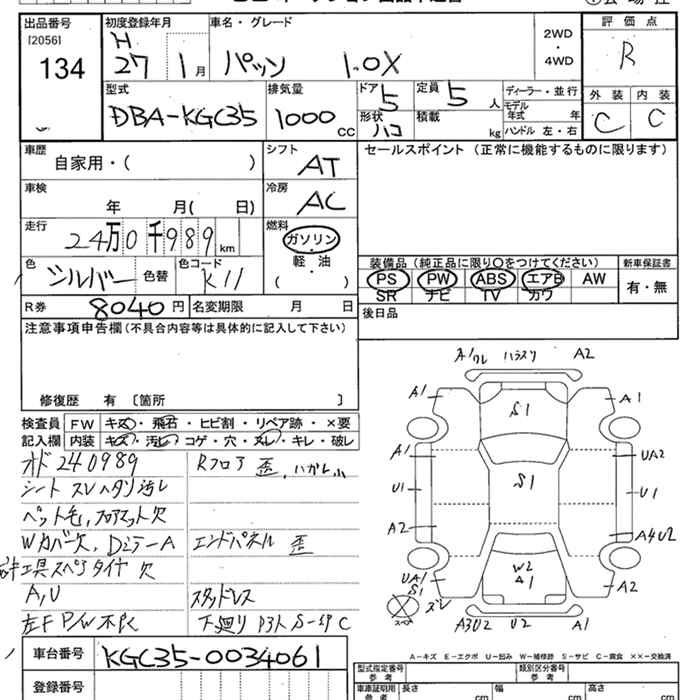 出品番号
[2056]
134
初度登録年月
H
27 1月
車名・グレード
パッソ 1.0X
2WD
・
4WD
評価点
R
型式
DBA-KGC35
排気量
1000 cc
ドア 5
定員 5 人
形状 ハコ
積載 kg
ディーラー・並行
モデル
年式 年
ハンドル 左・右
外装 内装
C C
車歴
自家用・( )
シフト
AT
セールスポイント (正常に機能するものに限ります)
車検
年 月( 日)
冷房
AC
走行
24万0千989 km
燃料
ガソリン
・
軽・油
( )
色
シルバー 色替
色コード
K11
装備品 (純正品に限り〇をつけてください)
PS PW ABS エアB AW
SR ナビ TV カワ
新車保証書
有・無
R券 8040 円
名変期限 月 日
後日品
注意事項申告欄(不具合内容等は具体的に記入して下さい)
修復歴 有 〔箇所 〕
検査員
記入欄
FW キズ・飛石・ヒビ割・リペア跡・×要
内装 キズ・汚レ・コゲ・穴・ヌレ・キレ・破レ
オド 240989
Rフロア 歪, ハガレ小
シート スレヘタリ汚レ
ペット毛, フロアマット欠
Wカバー欠, Dミラ-A
エンドパネル 歪
工具スペアタイヤ 欠
A,U
スタッドレス
左F P/W 不良
下廻り
車台番号 KGC35-0034061
登録番号
A1 ワレ ハラスリ A2
A1 A1
S1
A1 UA2
U1 S1 U1
A2 A4U2
W2
A1
UA1
S1
A2
スペア ズレ
A3U2 U2 A1
A-キズ E-エクボ U-凹み W-補修跡 S-サビ C-腐食 ××-交換済
型式指定番号
参考
類別区分番号
参考
車庫証明用
参考
長さ cm
幅 cm
高さ cm